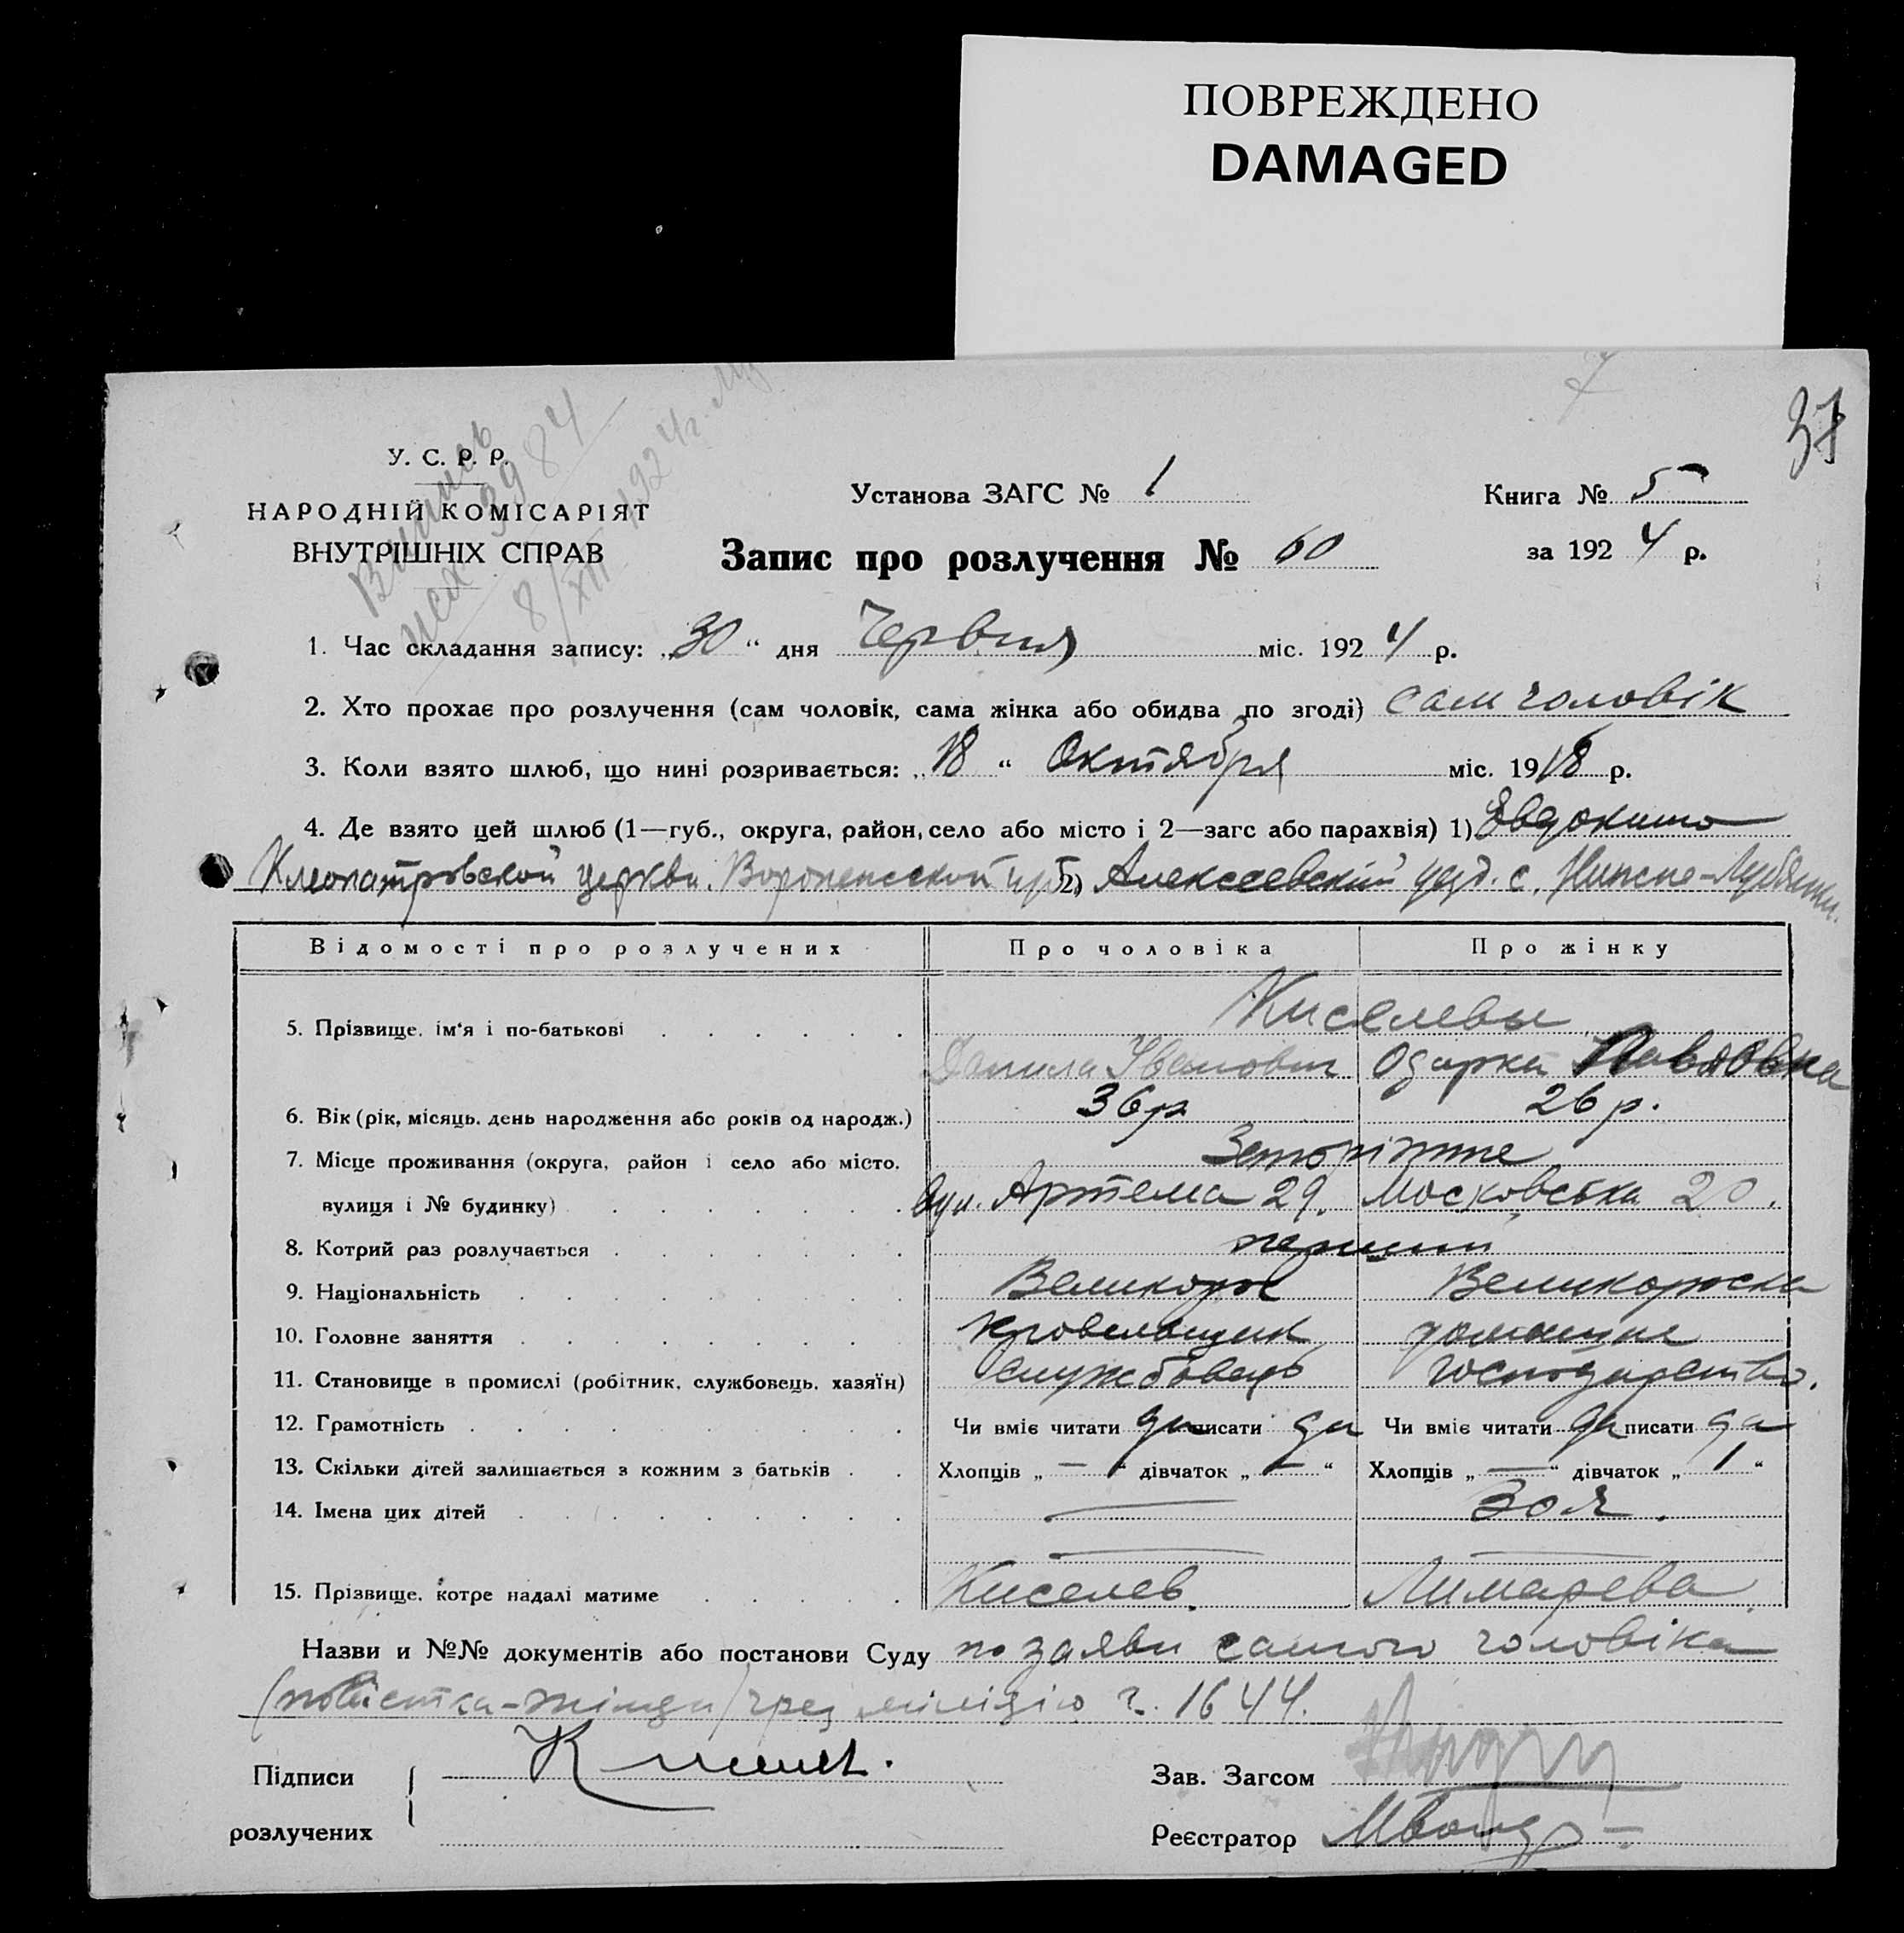 ПОВРЕЖДЕНО
DAMAGED
37
У. С. Р. Р.
НАРОДНІЙ КОМІСАРІЯТ
ВНУТРІШНІХ СПРАВ
3984
8/XII 1924 г.
Установа ЗАГС № 1
Книга № 5
Запис про розлучення № 60
за 1924 р.
1. Час складання запису: „30“ дня Червня міс. 1924 р.
2. Хто прохає про розлучення (сам чоловік, сама жінка або обидва по згоді) сам чоловік
3. Коли взято шлюб, що нині розривається: „18“ Октября міс. 1918 р.
4. Де взято цей шлюб (1—губ., округа, район, село або місто і 2—загс або парахвія) 1) Евдокимо
Клеопатровской церкви. Воронежской губ. 2) Алексеевский уезд. с.
Відомості про розлучених Про чоловіка Про жінку
5. Прізвище, ім'я і по-батькові Киселевы
Данила Іванович Одарка Павловна
6. Вік (рік, місяць, день народження або років од народж.) 36 р. 26 р.
7. Місце проживання (округа, район і село або місто, Запоріжже
вулиця і № будинку) вул. Артема 29. Московська 20.
8. Котрий раз розлучається перший
9. Національність Великорос Великороска
10. Головне заняття кровельщик домашнє
11. Становище в промислі (робітник, службовець, хазяїн) службовець господарство.
12. Грамотність Чи вміє читати да писати да Чи вміє читати да писати да
13. Скільки дітей залишається з кожним з батьків Хлопців „—“ дівчаток „—“ Хлопців „—“ дівчаток „1“
14. Імена цих дітей — Зоя.
15. Прізвище, котре надалі матиме Киселев. Лимарева.
Назви и №№ документів або постанови Суду по заяви самого чоловіка
(повістка-жінци) чрез міліцію ч. 1644.
Підписи
розлучених
Зав. Загсом
Реєстратор